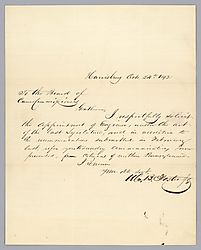 Harrisburg Oct 24th 183
To the Board of
Canal Commissioners
Gentlemen
I respectfully solicit
the appointment of Engineer, under the act
of the last Legislature, and in addition to
the recommendation submitted in February
last, refer you to sundry communications
presented, from citizens of western Pennsylvania
I remain
Your Ob. Svt.
Wm B. Foster Jr